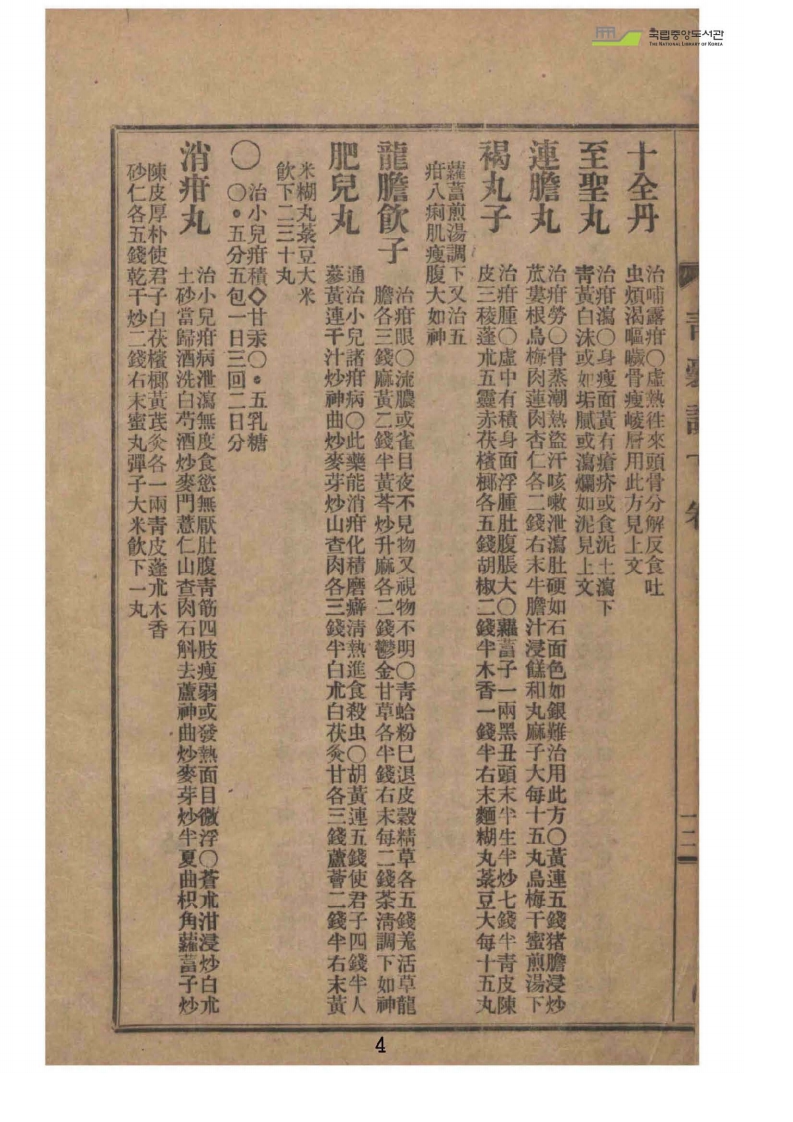 국립중앙도서관
THE NATIONAL LIBRARY OF KOREA
十全丹
治哺露疳〇虛熱徃來頭骨分解反食吐
虫煩渴嘔噦骨瘦崚層用此方見上文
至聖丸
治疳瀉〇身瘦面黃有瘡疥或食泥土瀉下
靑黃白沫或如垢膩或瀉爛如泥見上文
連膽丸
治疳勞〇骨蒸潮熱盜汗咳嗽泄瀉肚硬如石面色如銀難治用此方〇黃連五錢猪膽浸炒
苽蔞根烏梅肉蓮肉杏仁各二錢右末牛膽汁浸餻和丸麻子大每十五丸烏梅干蜜煎湯下
褐丸子
治疳腫〇虛中有積身面浮腫肚腹脹大〇蘿葍子一兩黑丑頭末半生半炒七錢半靑皮陳
皮三稜蓬朮五靈赤茯檳榔各五錢胡椒二錢半木香一錢半右末麵糊丸菉豆大每十五丸
蘿葍煎湯調下又治五
疳八痢肌瘦腹大如神
龍膽飮子
治疳眼〇流膿或雀目夜不見物又視物不明〇靑蛤粉巳退皮穀精草各五錢羗活草龍
膽各三錢麻黃二錢半黃芩炒升麻各二錢鬱金甘草各半錢右末每二錢茶淸調下如神
肥兒丸
通治小兒諸疳病〇此藥能消疳化積磨癖淸熱進食殺虫〇胡黃連五錢使君子四錢半人
蔘黃連干汁炒神曲炒麥芽炒山查肉各三錢半白朮白茯灸甘各三錢蘆薈二錢半右末黃
米糊丸菉豆大米
飮下二三十丸
〇
治小兒疳積◇甘汞〇。五乳糖
〇。五分五包一日三回二日分
消疳丸
治小兒疳病泄瀉無度食慾無厭肚腹靑筋四肢瘦弱或發熱面目微浮〇蒼朮泔浸炒白朮
土砂當歸酒洗白芍酒炒麥門薏仁山查肉石斛去蘆神曲炒麥芽炒半夏曲枳角蘿葍子炒
陳皮厚朴使君子白茯檳榔黃茋灸各一兩靑皮蓬朮木香
砂仁各五錢乾干炒二錢右末蜜丸彈子大米飮下一丸
一二
4